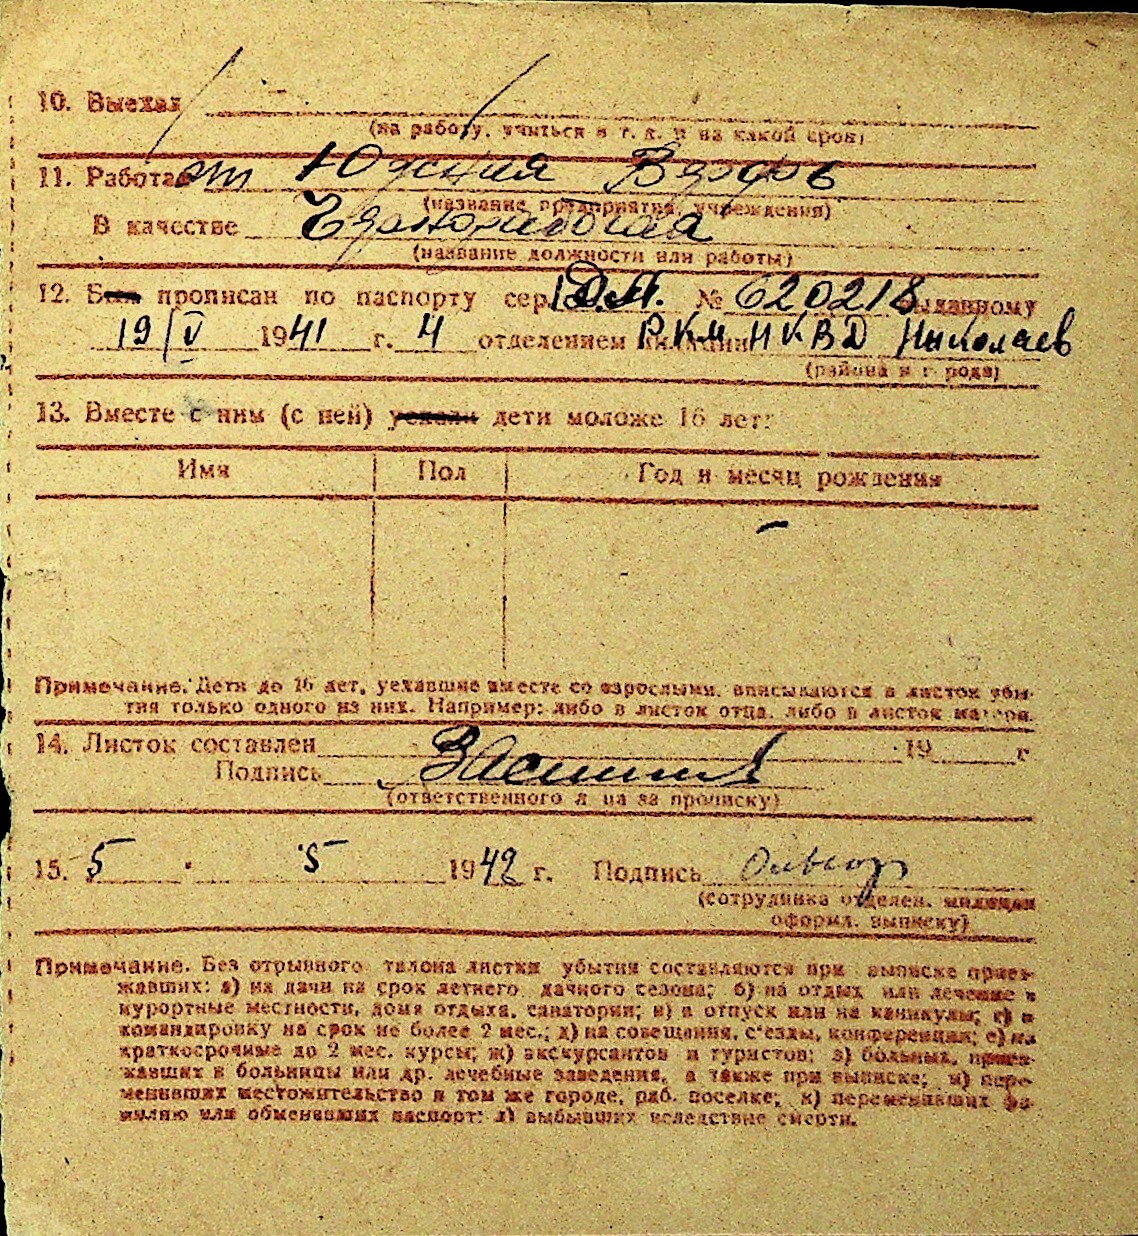 10. Выехал
(на работу, учиться и т. д. и на какой срок)
11. Работает Южная Верфь
(название предприятия, учреждения)
В качестве Чернорабочая
(название должности или работы)
12. Был прописан по паспорту сер. № 620218 выданному
19/V 1941 г. 4 отделением милиции Р.К.М. НКВД Николаев
(района и города)
13. Вместе с ним (с ней) уехали дети моложе 16 лет:
Имя Пол Год и месяц рождения
–
Примечание. Дети до 16 лет, уехавшие вместе со взрослыми, вписываются в листок убы-
тия только одного из них. Например: либо в листок отца, либо в листок матери.
14. Листок составлен 19 г
Подпись
(ответственного лица за прописку)
15. 5 5 1942 г. Подпись
(сотрудника отделен. милиции
оформл. выписку)
Примечание. Без отрывного талона листки убытия составляются при выписке приез-
жавших: а) на дачи на срок летнего дачного сезона; б) на отдых или лечение в
курортные местности, дома отдыха, санатории; в) в отпуск или на каникулы; г) в
командировку на срок не более 2 мес.; д) на совещания, с'езды, конференции; е) на
краткосрочные до 2 мес. курсы; ж) экскурсантов и туристов; з) больных, приез-
жавших в больницы или др. лечебные заведения, а также при выписке; и) пере-
менивших местожительство в том же городе, раб. поселке; к) переменивших фа-
милию или обменявших паспорт; л) выбывших вследствие смерти.